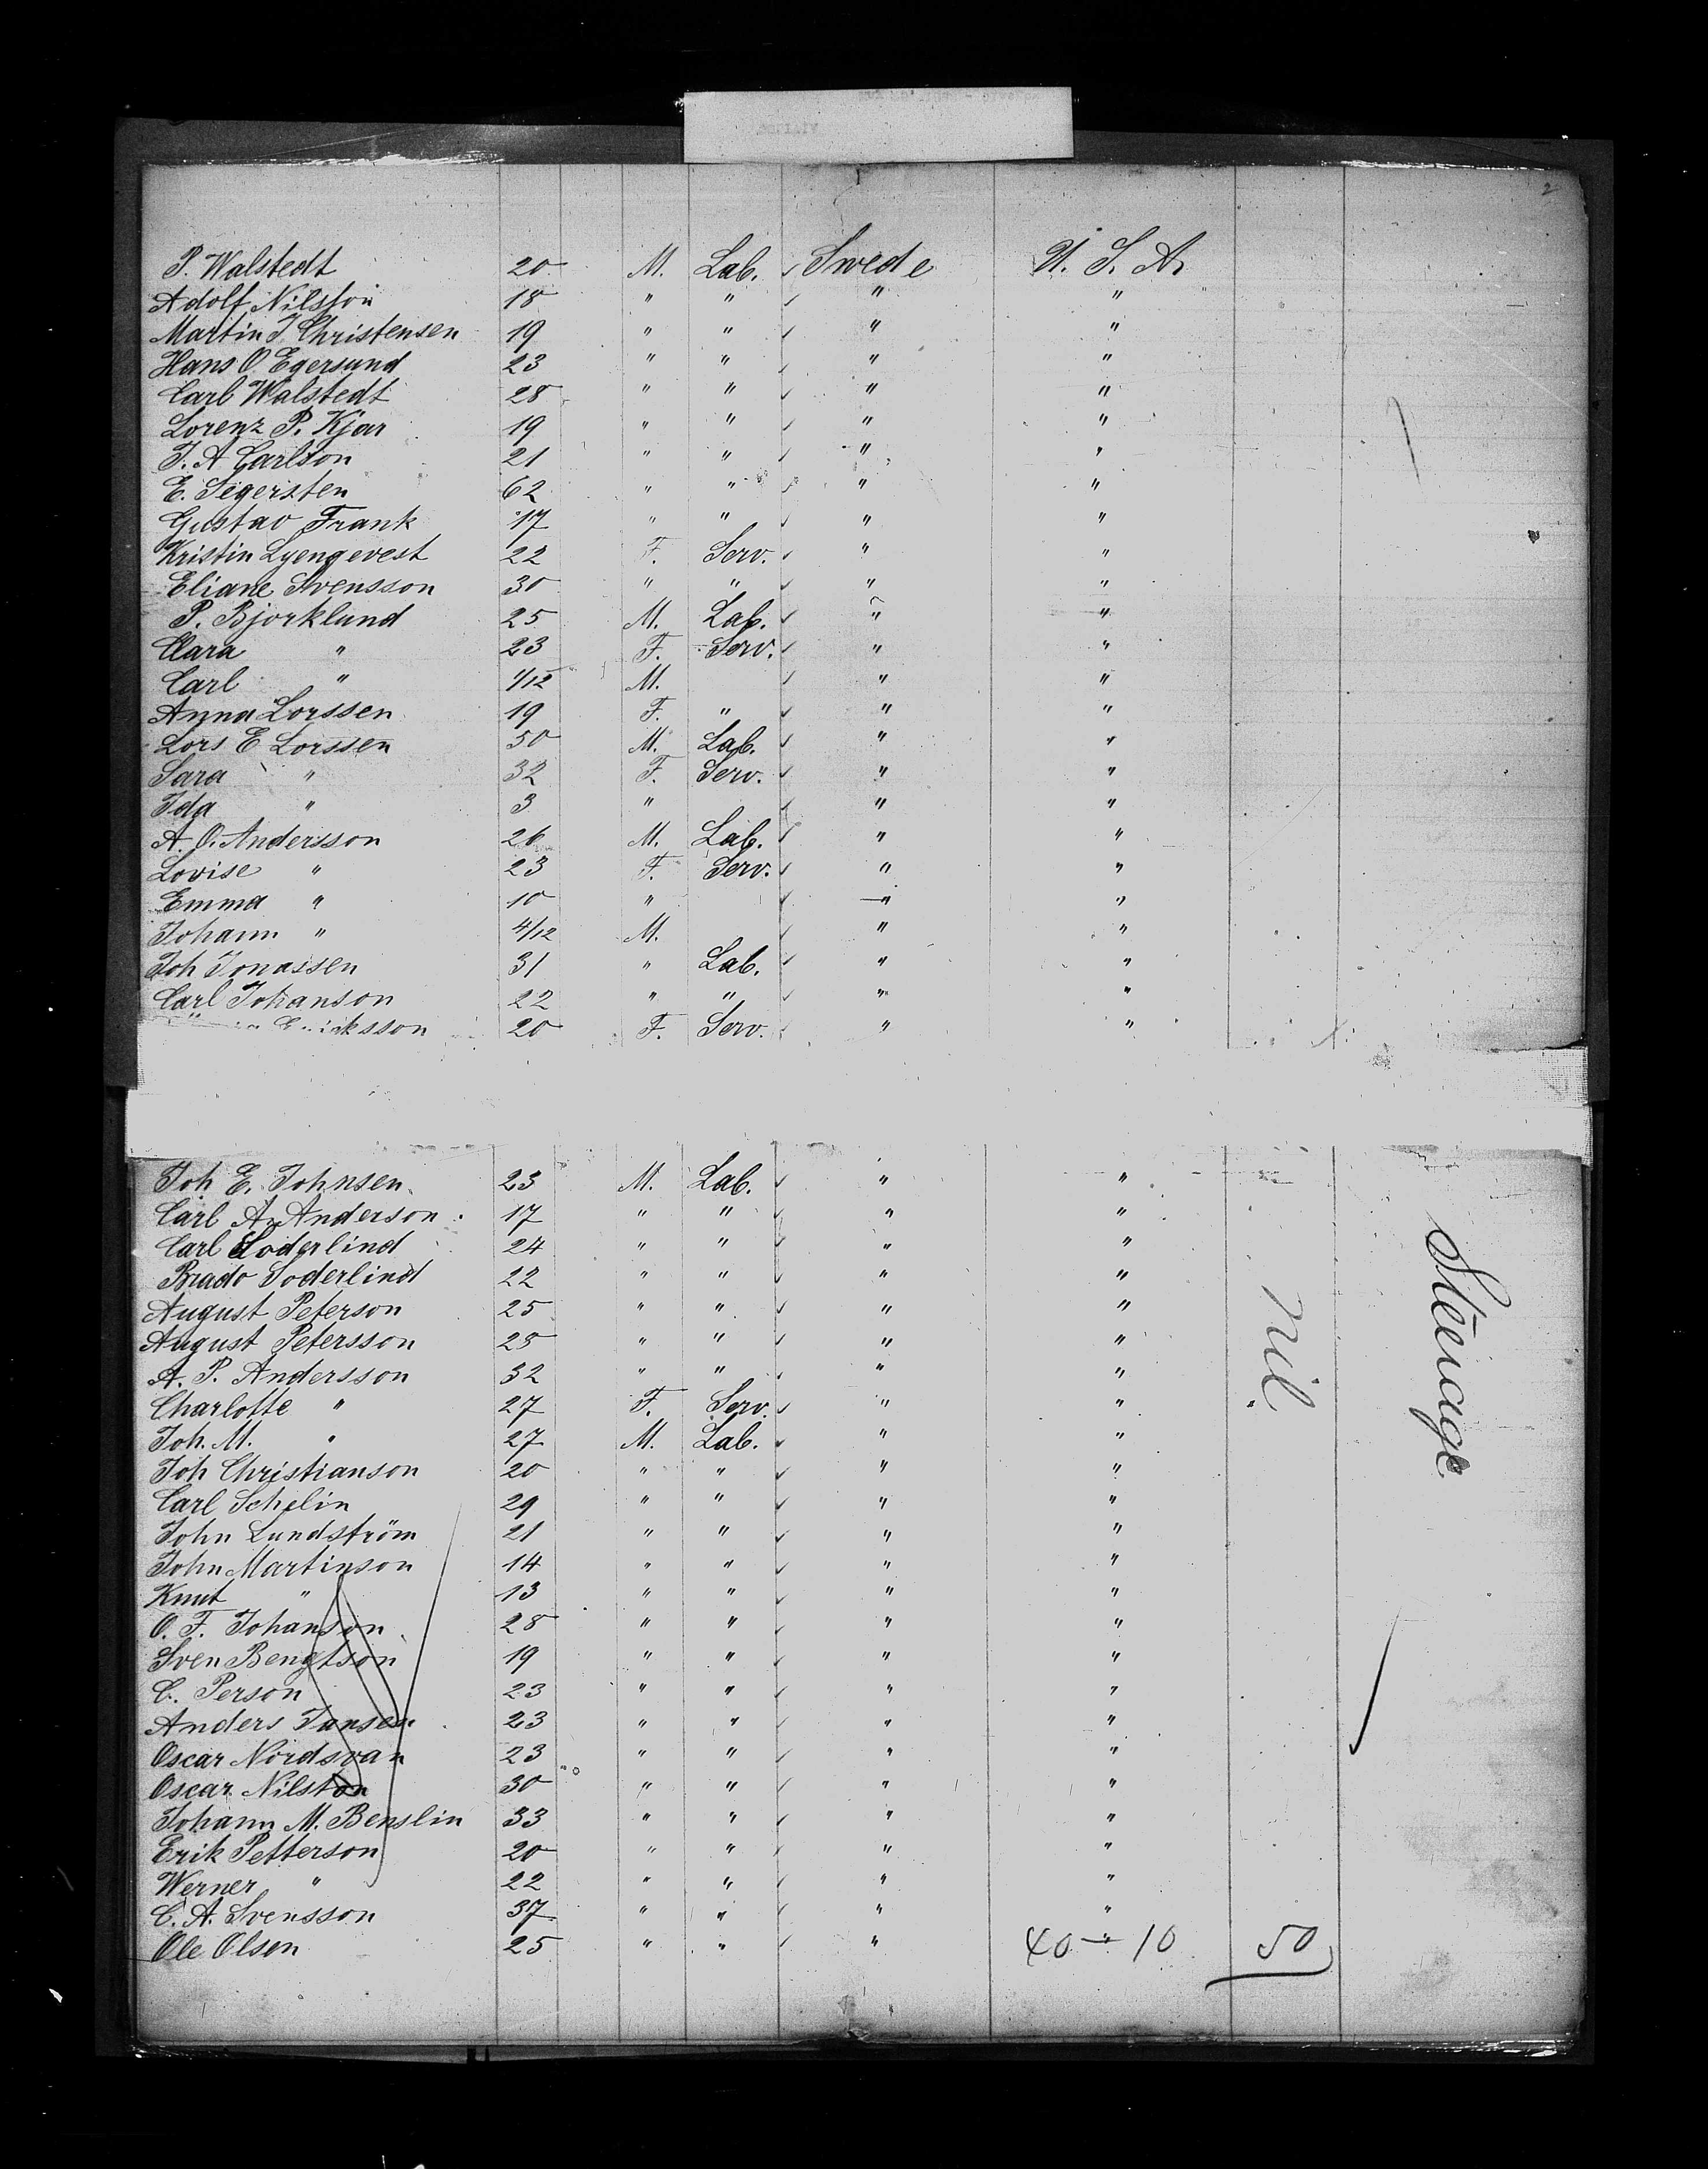 2
P. Walstedt 20 M. Lab. ✓ Swede U. S. A.
Adolf Nilsson 18 " " ✓ " "
Martin J Christensen 19 " " ✓ " "
Hans O. Egersund 23 " " ✓ " "
Carl Walstedt 28 " " ✓ " "
Lorenz P. Kjar 19 " " ✓ " "
J. A Carlson 21 " " ✓ " "
E. Segersten 62 " " ✓ " "
Gustav Frank 17 " " ✓ " "
Kristin Lyengevest 22 F. Serv. ✓ " "
Eliane Svensson 30 " " ✓ " "
P. Bjorklund 25 M. Lab. ✓ " "
Clara " 23 F. Serv. ✓ " "
Carl " 1/12 M. ✓ " "
Anna Lorssen 19 F. " ✓ " "
Lors E Lorssen 50 M. Lab. ✓ " "
Sara " 32 F. Serv. ✓ " "
Ida " 3 " ✓ " "
A. O. Andersson 26 M. Lab. ✓ " "
Lovise " 23 F. Serv. ✓ " "
Emma " 10 " ✓ " "
Johann " 4/12 M. ✓ " "
Joh Jonassen 31 " Lab. ✓ " "
Carl Johanson 22 " " ✓ " "
20 F. Serv. " "
Joh E. Johnsen 23 M. Lab. ✓ " "
Carl A. Anderson 17 " " ✓ " "
Carl Soderlind 24 " " ✓ " "
Brado Soderlind 22 " " ✓ " "
August Peterson 25 " " ✓ " "
August Petersson 25 " " ✓ " "
A. P. Andersson 32 " " ✓ " "
Charlotte " 27 F. Serv. ✓ " " "
Joh. M. " 27 M. Lab. ✓ " "
Joh Christianson 20 " " ✓ " "
Carl Schelin 29 " " ✓ " "
John Lundström 21 " " ✓ " "
John Martinson 14 " " ✓ " "
Knut " 13 " " ✓ " "
O. F. Johanson 28 " " ✓ " "
Sven Bengtson 19 " " ✓ " "
C. Person 23 " " ✓ " "
Anders Jansen 23 " " ✓ " "
Oscar Nordsvan 23 " " ✓ " "
Oscar Nilston 30 " " ✓ " "
Johann M. Benslin 33 " " ✓ " "
Erik Petterson 20 " " ✓ " "
Werner " 22 " " ✓ " "
C. A. Svensson 37 " " ✓ " "
Ole Olsen 25 " " ✓ " "
40 - 10 50
nil
Steerage